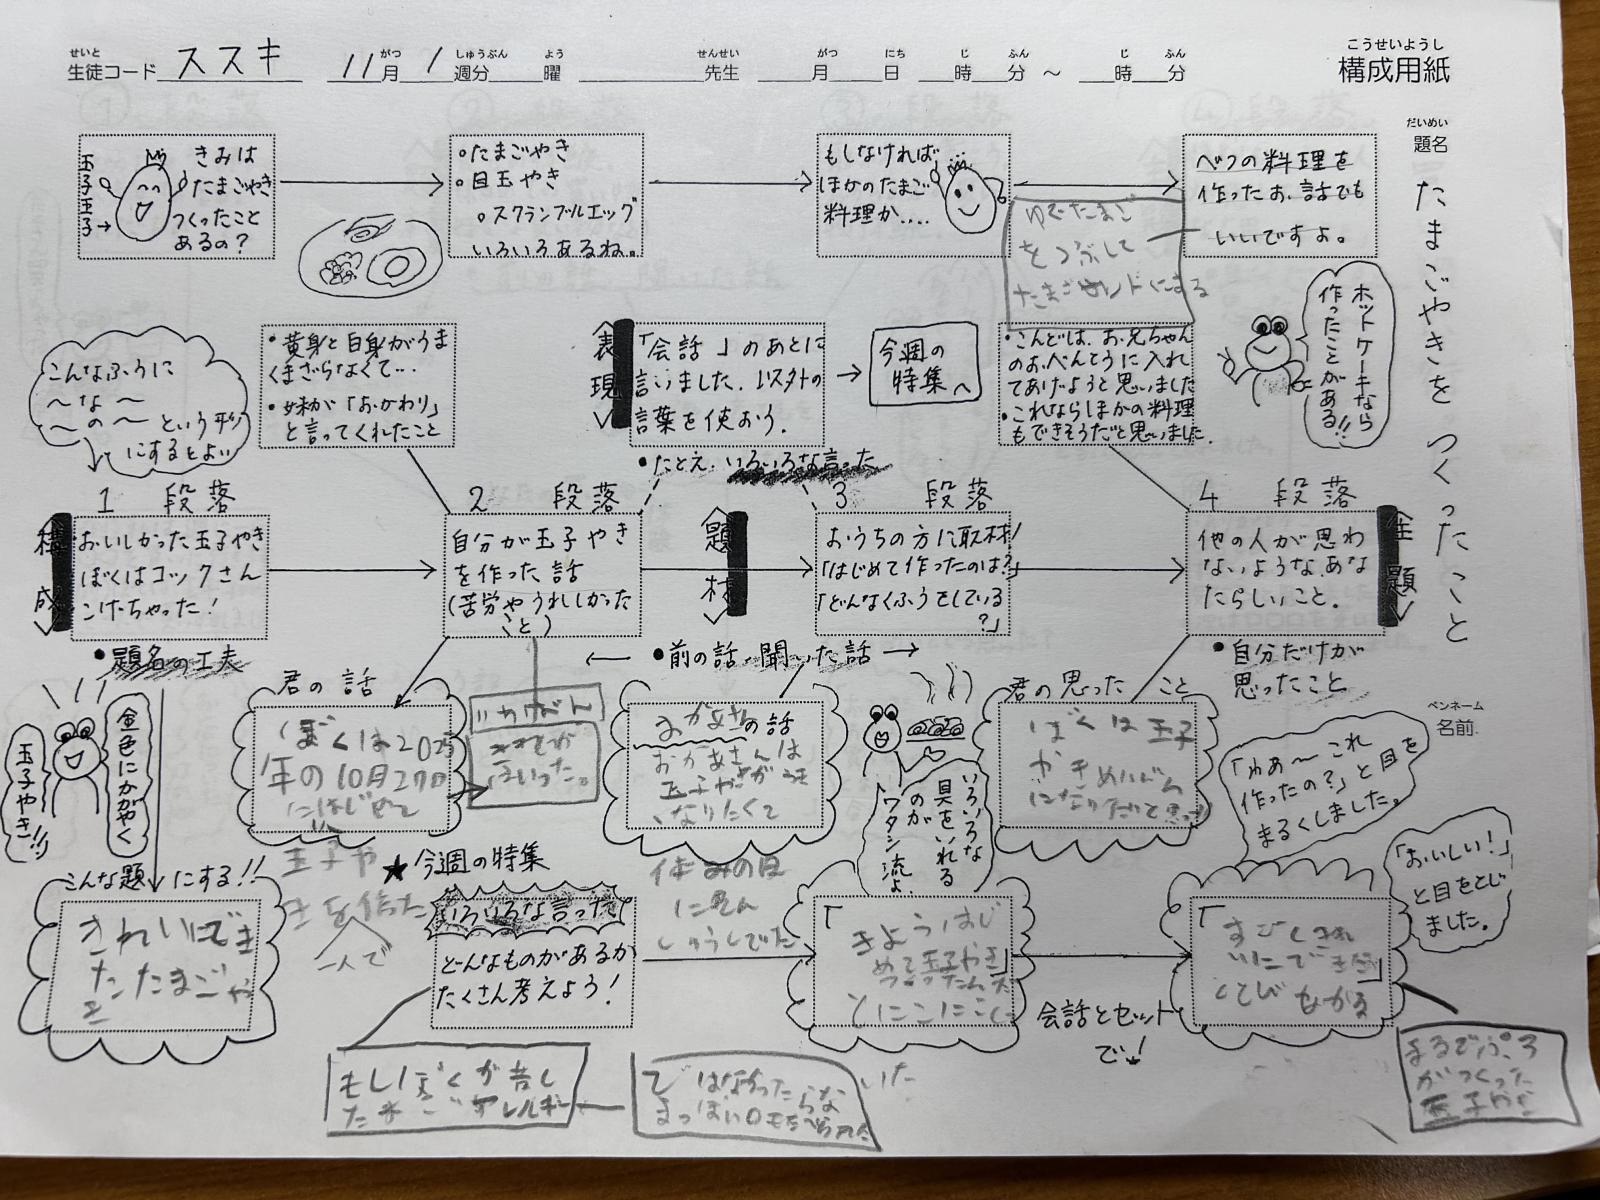 せいと
生徒コード ススキ 11月 1週分 曜 先生 月 日 時 分 ～ 時 分
がつ しゅうぶん よう せんせい がつ にち じ ふん じ ふん
こうせいようし
構成用紙
だいめい
題名
たまごやきをつくったこと
ペンネーム
名前
玉子王子→
きみは
たまごやき
つくったこと
あるの？
○たまごやき
○目玉やき
○スクランブルエッグ
いろいろあるね。
もしなければ
ほかのたまご
料理か....
べつの料理を
作ったお話でも
いいですよ。
ゆでたまご
をつぶして
たまごサンドにする
ホットケーキなら
作ったことがある!!
こんなふうに
～な～
～の～という形
にするとよい
・黄身と白身がうま
くまざらなくて…
・妹が「おかわり」
と言ってくれたこと
表現
「会話」のあとに
言いました.以外の
言葉を使おう.
・たとえ.いろいろな言った
今週の
特集へ
・こんどは、お兄ちゃん
のおべんとうに入れ
てあげようと思いました
・これならほかの料理
もできそうだと思いました.
1 段落
2 段落
3 段落
4 段落
構成
おいしかった玉子やき
ぼくはコックさん
こげちゃった！
・題名の工夫
自分が玉子やき
を作った話
(苦労やうれしかった
こと)
題材
おうちの方に取材！
「はじめて作ったのは？」
「どんなくふうをしている
？」
←・前の話・聞いた話→
他の人が思わ
ないような、あな
たらしいこと。
主題
・自分だけが
思ったこと
金色にかがやく
玉子やき!!
君の話
ぼくは2025
年の10月27日
にはじめて
玉子や
きを作った
一人で
おかあさんの話
おかあさんは
玉子やきがうまく
なりたくて
休みの日
にれん
しゅうしてた
いろいろな
具をいれる
のが
ワタシ流よ.
君の思ったこと
ぼくは玉子
「わぁ～これ
作ったの？」と目を
まるくしました。
「おいしい！」
と目をとじ
ました。
こんな題にする!!
きれいにでき
たたまごや
き
★今週の特集
いろいろな言った
どんなものがあるか
たくさん考えよう！
「きょうはじ
めて玉子やき
つくったんだ」
とにこにこし
ていた
会話とセット
で！
「すごくきれ
いにできたね」
もしぼくが
たまごアレルギー
ではなかったらな
まるでぷろ
がつくった
玉子やき